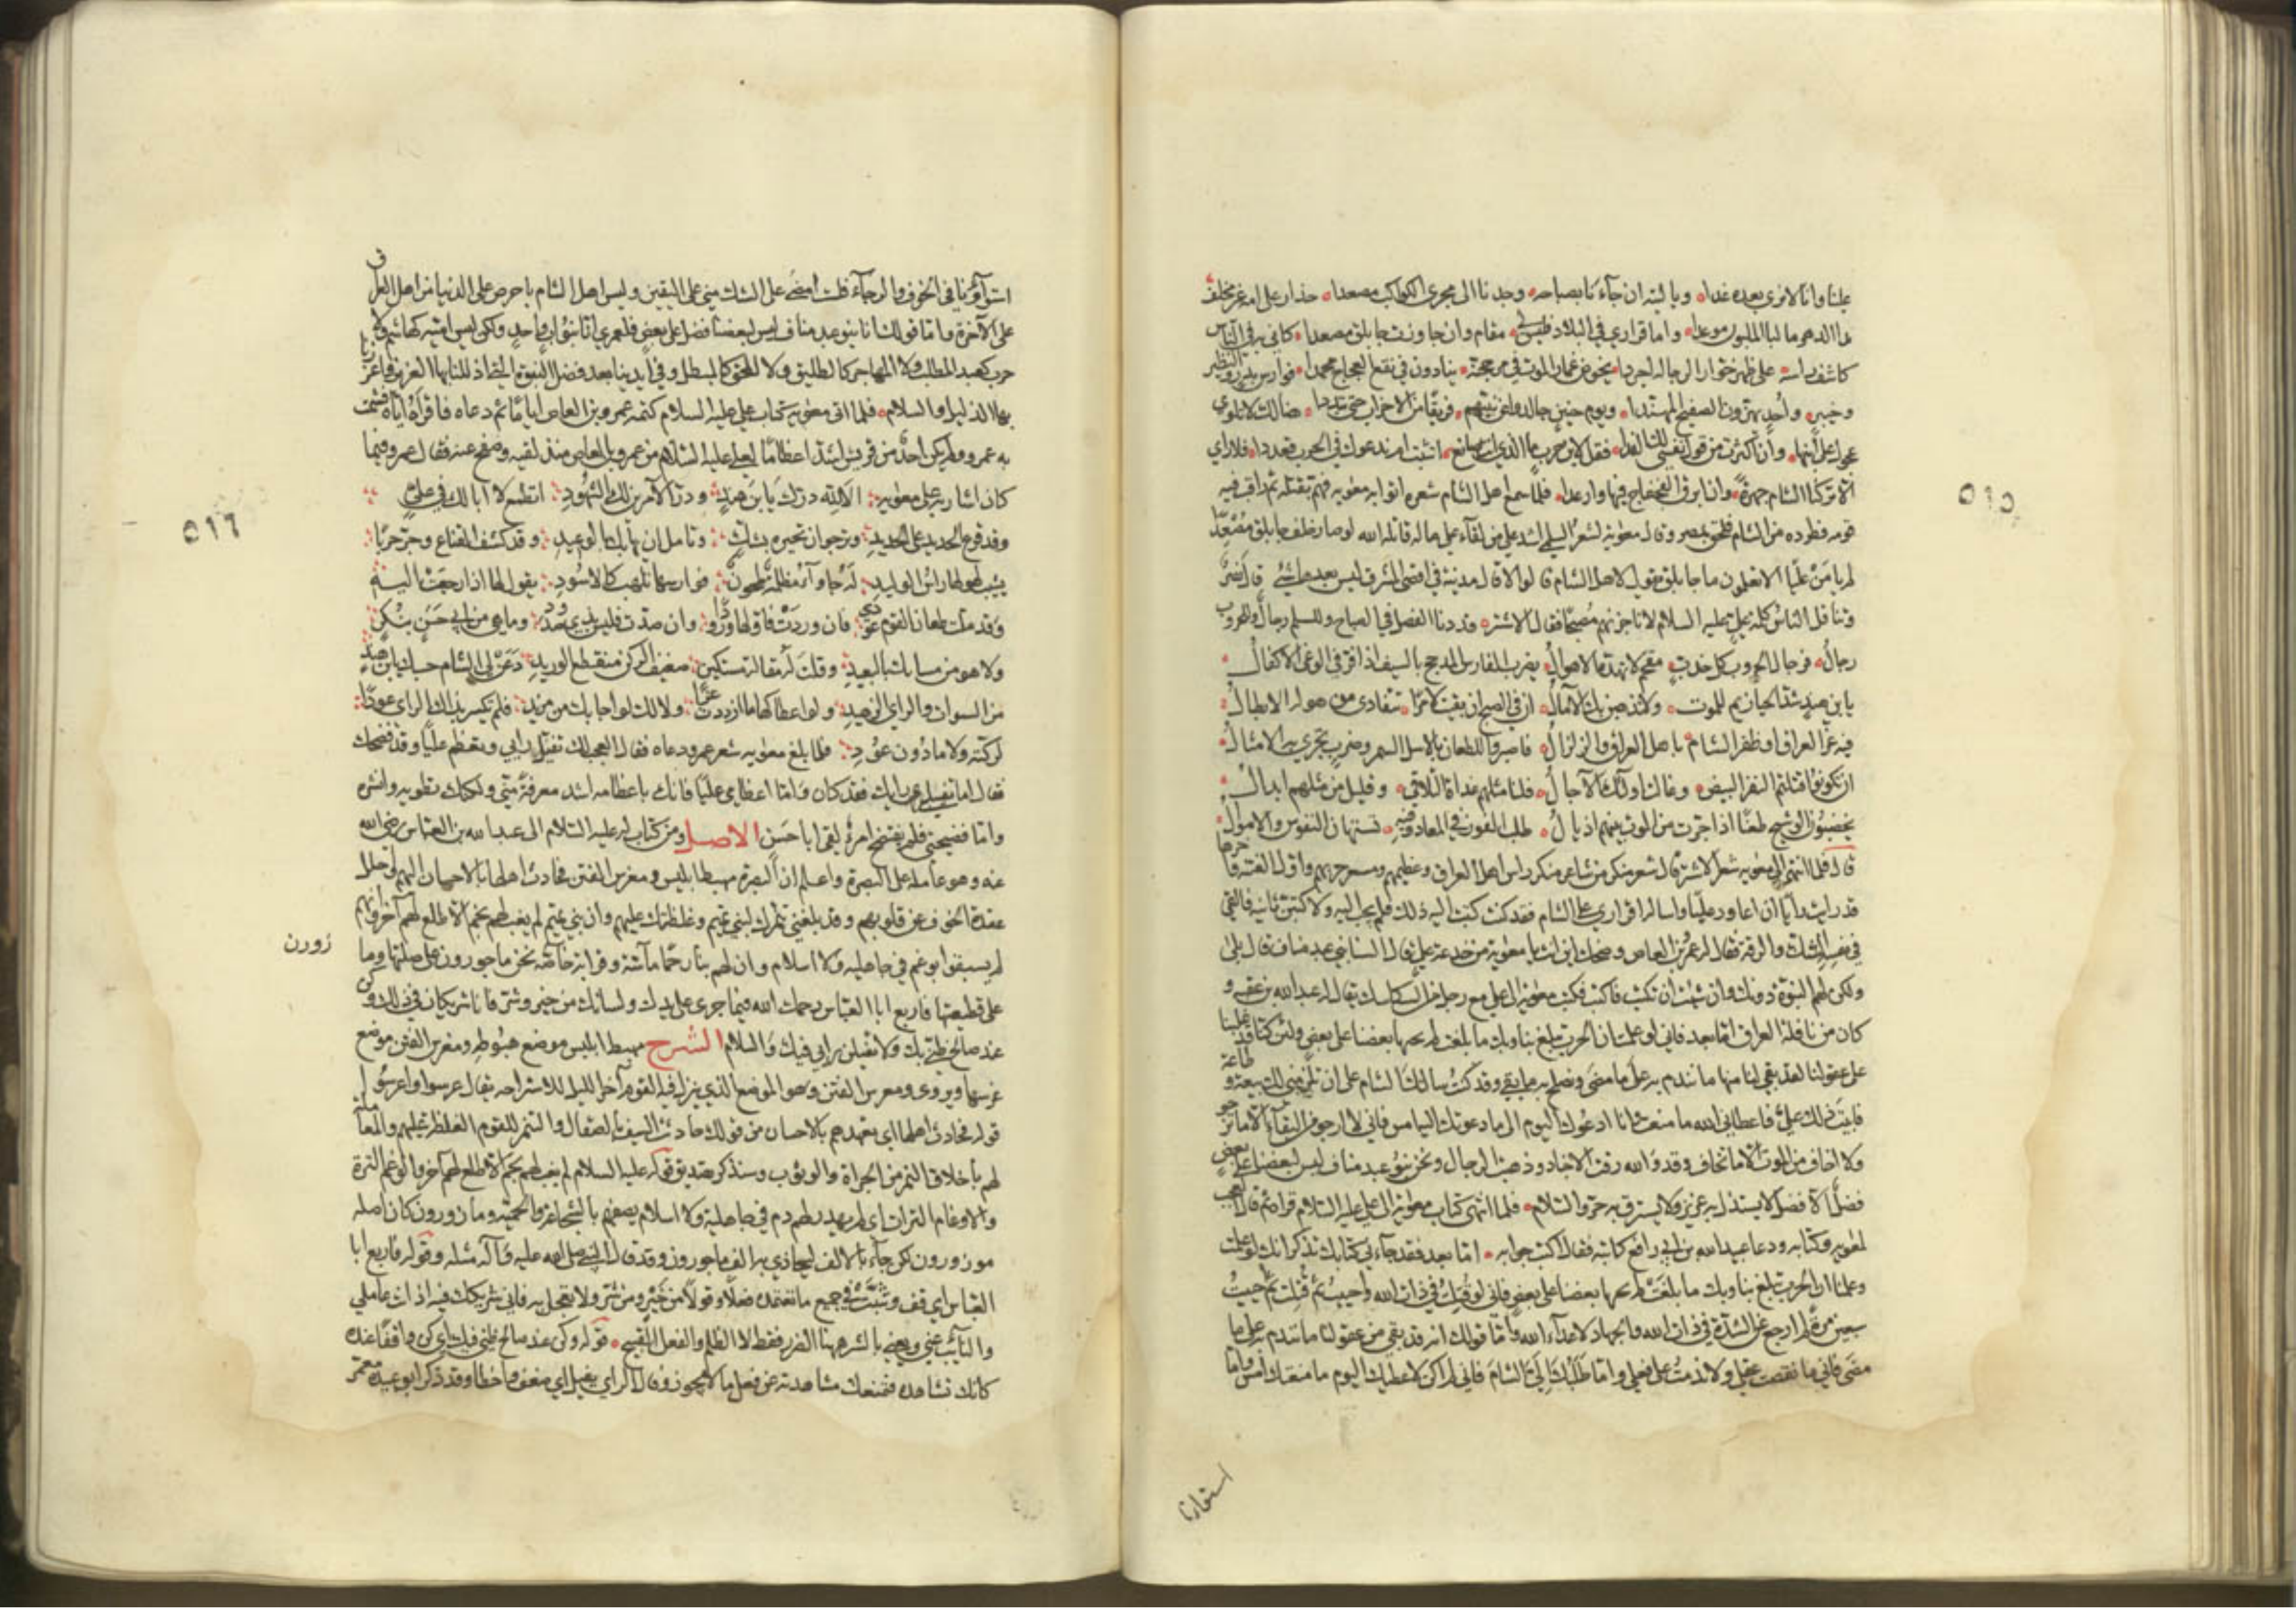 علينا وانا لا نرى بعده غدا وياليته ان جاءنا بصباحه وجدنا الى مجرى الكواكب مصعدا حذار على انه غير مخلف
مدا الدهر ما لبا الملبون موعدا واما قراري في البلاد فليس لي مقام وان جاوزت جابلق مصعدا كاني به في الناس
كاشف راسه على ظهر خوار الرحالة اجردا يخوض غمار الموت في مرجحنة ينادون في نقع العجاج محمدا فوارس بدر والنظير
وخيبر وأحد يهزون الصفيح المهندا ويوم حنين جالدوا عن نبيهم فريقا من الاحزاب حتى تبددا هنالك لا تلوي
عجوز على ابنها وان اكثرت من قول نفسي لك الفدا فقل لابن حرب ما الذي انت صانع اتثبت ام ندعوك في الحرب قعددا فلا راي
الا تركنا الشام جهرة وان ابرق الفجفاج فيها وارعدا فلما سمع اهل الشام شعره اتوا به معويه فهم بقتله ثم راقب فيه
قومه فطرده من الشام فلحق بمصر وقال معوية لشعر السلمي اشد علي من لقاء علي ما له قاتله الله لو صار خلف جابلق مصعدا
لم يامن عليا الا تعلمون ما جابلق يقوله لاهل الشام قالوا لا قال مدينة في اقصى المشرق ليس بعدها شئ قال نصر
وتناقل الناس كلمة علي عليه السلام لاناجزنهم مصبحا فقال الاشتر قد دنا الفصل في الصباح وللسلم رجال وللحروب
رجال فرجال الحروب كل خدب مقحم لا تهده الاهوال يضرب الفارس المدجج بالسيف اذا فر في الوغا الاكفال
يابن هند شد الحيازيم للموت ولا تذهبن بك الآمال ان في الصبح ان بقيت لامرا تتفادى من هوله الابطال
فيه عز العراق او ظفر الشام باهل العراق والزلزال فاصبروا للطعان بالاسل السمر وضرب تجري به الامثال
ان تكونوا قتلتم النفر البيض وغالت اولئك الآجال فلنا مثلهم غداة التلاقي وقليل من مثلهم ابدال
يخضبون الوشيج طعنا اذا جرت من الموت بينهم اذيال طلب الفوز في المعاد وفيه تستهان النفوس والاموال
قال فلما انتهى الى معويه شعر الاشتر قال شعر منكر من شاعر منكر راس اهل العراق وعظيمهم ومسعر حربهم واول الفتنة واخرها
قد رايت رأيا ان اعاود عليا واساله اقراري على الشام فقد كنت كتبت اليه ذلك فلم يجب اليه ولاكتبن ثانيه فالقي
في نفسه الشك والرقة فقال له عمرو بن العاص وضحك اين انت يا معوية من خدعة علي قال السنا بني عبد مناف قال بلى
ولكن لهم النبوة دونك وان شئت ان تكتب فاكتب فكتب معوية الى علي مع رجل من السكاسك يقال له عبد الله بن عقبه و
كان من ناقلة العراق اما بعد فاني لو علمت ان الحرب تبلغ بنا وبك ما بلغت لم يجنها بعضنا على بعض ولئن كنا قد غلبنا
على عقولنا لقد بقي لنا منها ما نندم به على ما مضى ونصلح به ما بقي وقد كنت سالتك الشام على ان تلزمني لك بيعة وطاعة
فابيت ذلك علي فاعطاني الله ما منعت وانا ادعوك اليوم الى ما دعوتك اليه امس فاني لا ارجو من البقاء الا ما ترجو
ولا اخاف من الموت الا ما تخاف وقد والله رقت الاجناد وذهبت الرجال ونحن بنو عبد مناف ليس لبعضنا على بعض
فضل الا فضل لا يستذل به عزيز ولا يسترق به حر والسلام فلما انتهى كتاب معوية الى علي عليه السلام قراه ثم قال العجب
لمعويه وكتابه ودعا عبيد الله بن ابي رافع كاتبه فقال اكتب جوابه اما بعد فقد جاءني كتابك تذكر انك لو علمت
وعلمنا ان الحرب تبلغ بنا وبك ما بلغت لم يجنها بعضنا على بعض فاني لو قتلت في ذات الله وحييت ثم قتلت ثم حييت
سبعين مرة لم ارجع عن الشدة في ذات الله والجهاد لاعداء الله واما قولك انه قد بقي من عقولنا ما نندم به على ما
مضى فاني ما نقصت عقلي ولا ندمت على فعلي واما طلبك الي الشام فاني لم اكن لاعطيك اليوم ما منعتك امس واما
استوآؤنا
٥١٥
استوآؤنا في الخوف والرجاء فلست امضى على الشك مني على اليقين وليس اهل الشام باحرص على الدنيا من اهل العراق
على الآخرة واما قولك انا بنو عبد مناف ليس لبعضنا فضل على بعض فلعمري انا بنو اب واحد ولكن ليس امية كهاشم ولا
حرب كعبد المطلب ولا المهاجر كالطليق ولا المحق كالمبطل وفي ايدينا بعد فضل النبوة التي اذللنا بها العزيز واعززنا
بها الذليل والسلام فلما اتى معويه كتاب علي عليه السلام كتمه عمرو بن العاص اياما ثم دعاه فاقرأه اياه فشمت
به عمرو ولم يكن احد من قريش اشد اعظاما لعلي عليه السلام من عمرو بن العاص منذ لقيه وصفح عنه فقال عمرو فيما
كان اشار به على معويه الا لله درك يابن هند ودر الآمرين لك الشهود اتطمع لا ابا لك في علي
وقد قرع الحديد على الحديد وترجو ان تحيره بشك وتامل ان يهابك بالوعيد وقد كشف القناع وجر حربا
يشيب لهولها راس الوليد له جاواء مظلمة طحون فوارسها تلهب كالاسود يقول لها اذا رجعت اليه
وقد ملت طعان القوم عودي فان وردت فاولها ورودا وان صدت فليس بذي صدود وما هي من ابي حسن بنكر
ولا هو من مسائك بالبعيد وقلت له مقالة مستكين ضعيف الركن منقطع الوريد دعن لي الشام حسبك يابن هند
من السوات والراي الزهيد ولو اعطاكها ما ازددت عزا ولا لك لو اجابك من مزيد فلم تكسر بذاك الراي عودا
لركته ولا ما دون عود فلما بلغ معويه شعر عمرو دعاه فقال العجب لك تفيل رايي وتعظم عليا وقد فضحك
فقال اما تفييلي رايك فقد كان واما اعظامي عليا فانك باعظامه اشد معرفة مني ولكنك تطويه وانشره
واما فضيحتي فلم يفتضح امرؤ لقي ابا حسن الاصل ومن كتاب له عليه السلام الى عبد الله بن العباس رضي الله
عنه وهو عامله على البصرة واعلم ان البصرة مهبط ابليس ومغرس الفتن فحادث اهلها بالاحسان اليهم واحلل
عقدة الخوف عن قلوبهم وقد بلغني تنمرك لبني تميم وغلظتك عليهم وان بني تميم لم يغب لهم نجم الا طلع لهم آخر وانهم
لم يسبقوا بوغم في جاهليه ولا اسلام وان لهم بنا رحما مآسة وقرابة خاصة نحن ماجورون على صلتها وما
زورون
على قطيعتها فاربع ابا العباس رحمك الله فيما جرى على يدك ولسانك من خير وشر فانا شريكان في ذلك وكن
عند صالح ظني بك ولا يفيلن رايي فيك والسلام الشرح مهبط ابليس موضع هبوطه ومغرس الفتن موضع
غرسها ويروى ومعرس الفتن وهو الموضع الذي ينزل فيه القوم آخر الليل للاستراحه يقال عرسوا واعرسوا
قوله فحادث اهلها اي تعهدهم بالاحسان من قولك حادثت السيف بالصقال والتنمر للقوم الغلظة عليهم والمعاملة
لهم باخلاق النمر من الجراة والوثوب وسنذكر تصديق قوله عليه السلام لم يغب لهم نجم الا طلع لهم آخر والوغم الترة
والاوغام الترات اي لم يهدر لهم دم في جاهلية ولا اسلام يصفهم بالشجاعة والحمية ومازورون كان اصله
موزورون لكن جاء بالالف ليحاذي به الف ماجورون وقد قال النبي صلى الله عليه وآله مثله وقوله فاربع ابا
العباس اي قف وتثبت في جميع ما تعتمده فعلا وقولا من خير ومن شر ولا تعجل به فاني شريكك فيه اذ انت عاملي
والنآئب عني ويعني بالشر ههنا الضرر فقط لا الظلم والفعل القبيح قوله وكن عند صالح ظني فيك اي كن واقفا عنده
كانك تشاهده فتمنعك مشاهدته عن فعل ما لا يجوز وفال الراي يفيل اي ضعف واخطا وقد ذكر ابو عبيده معمر
٥١٦